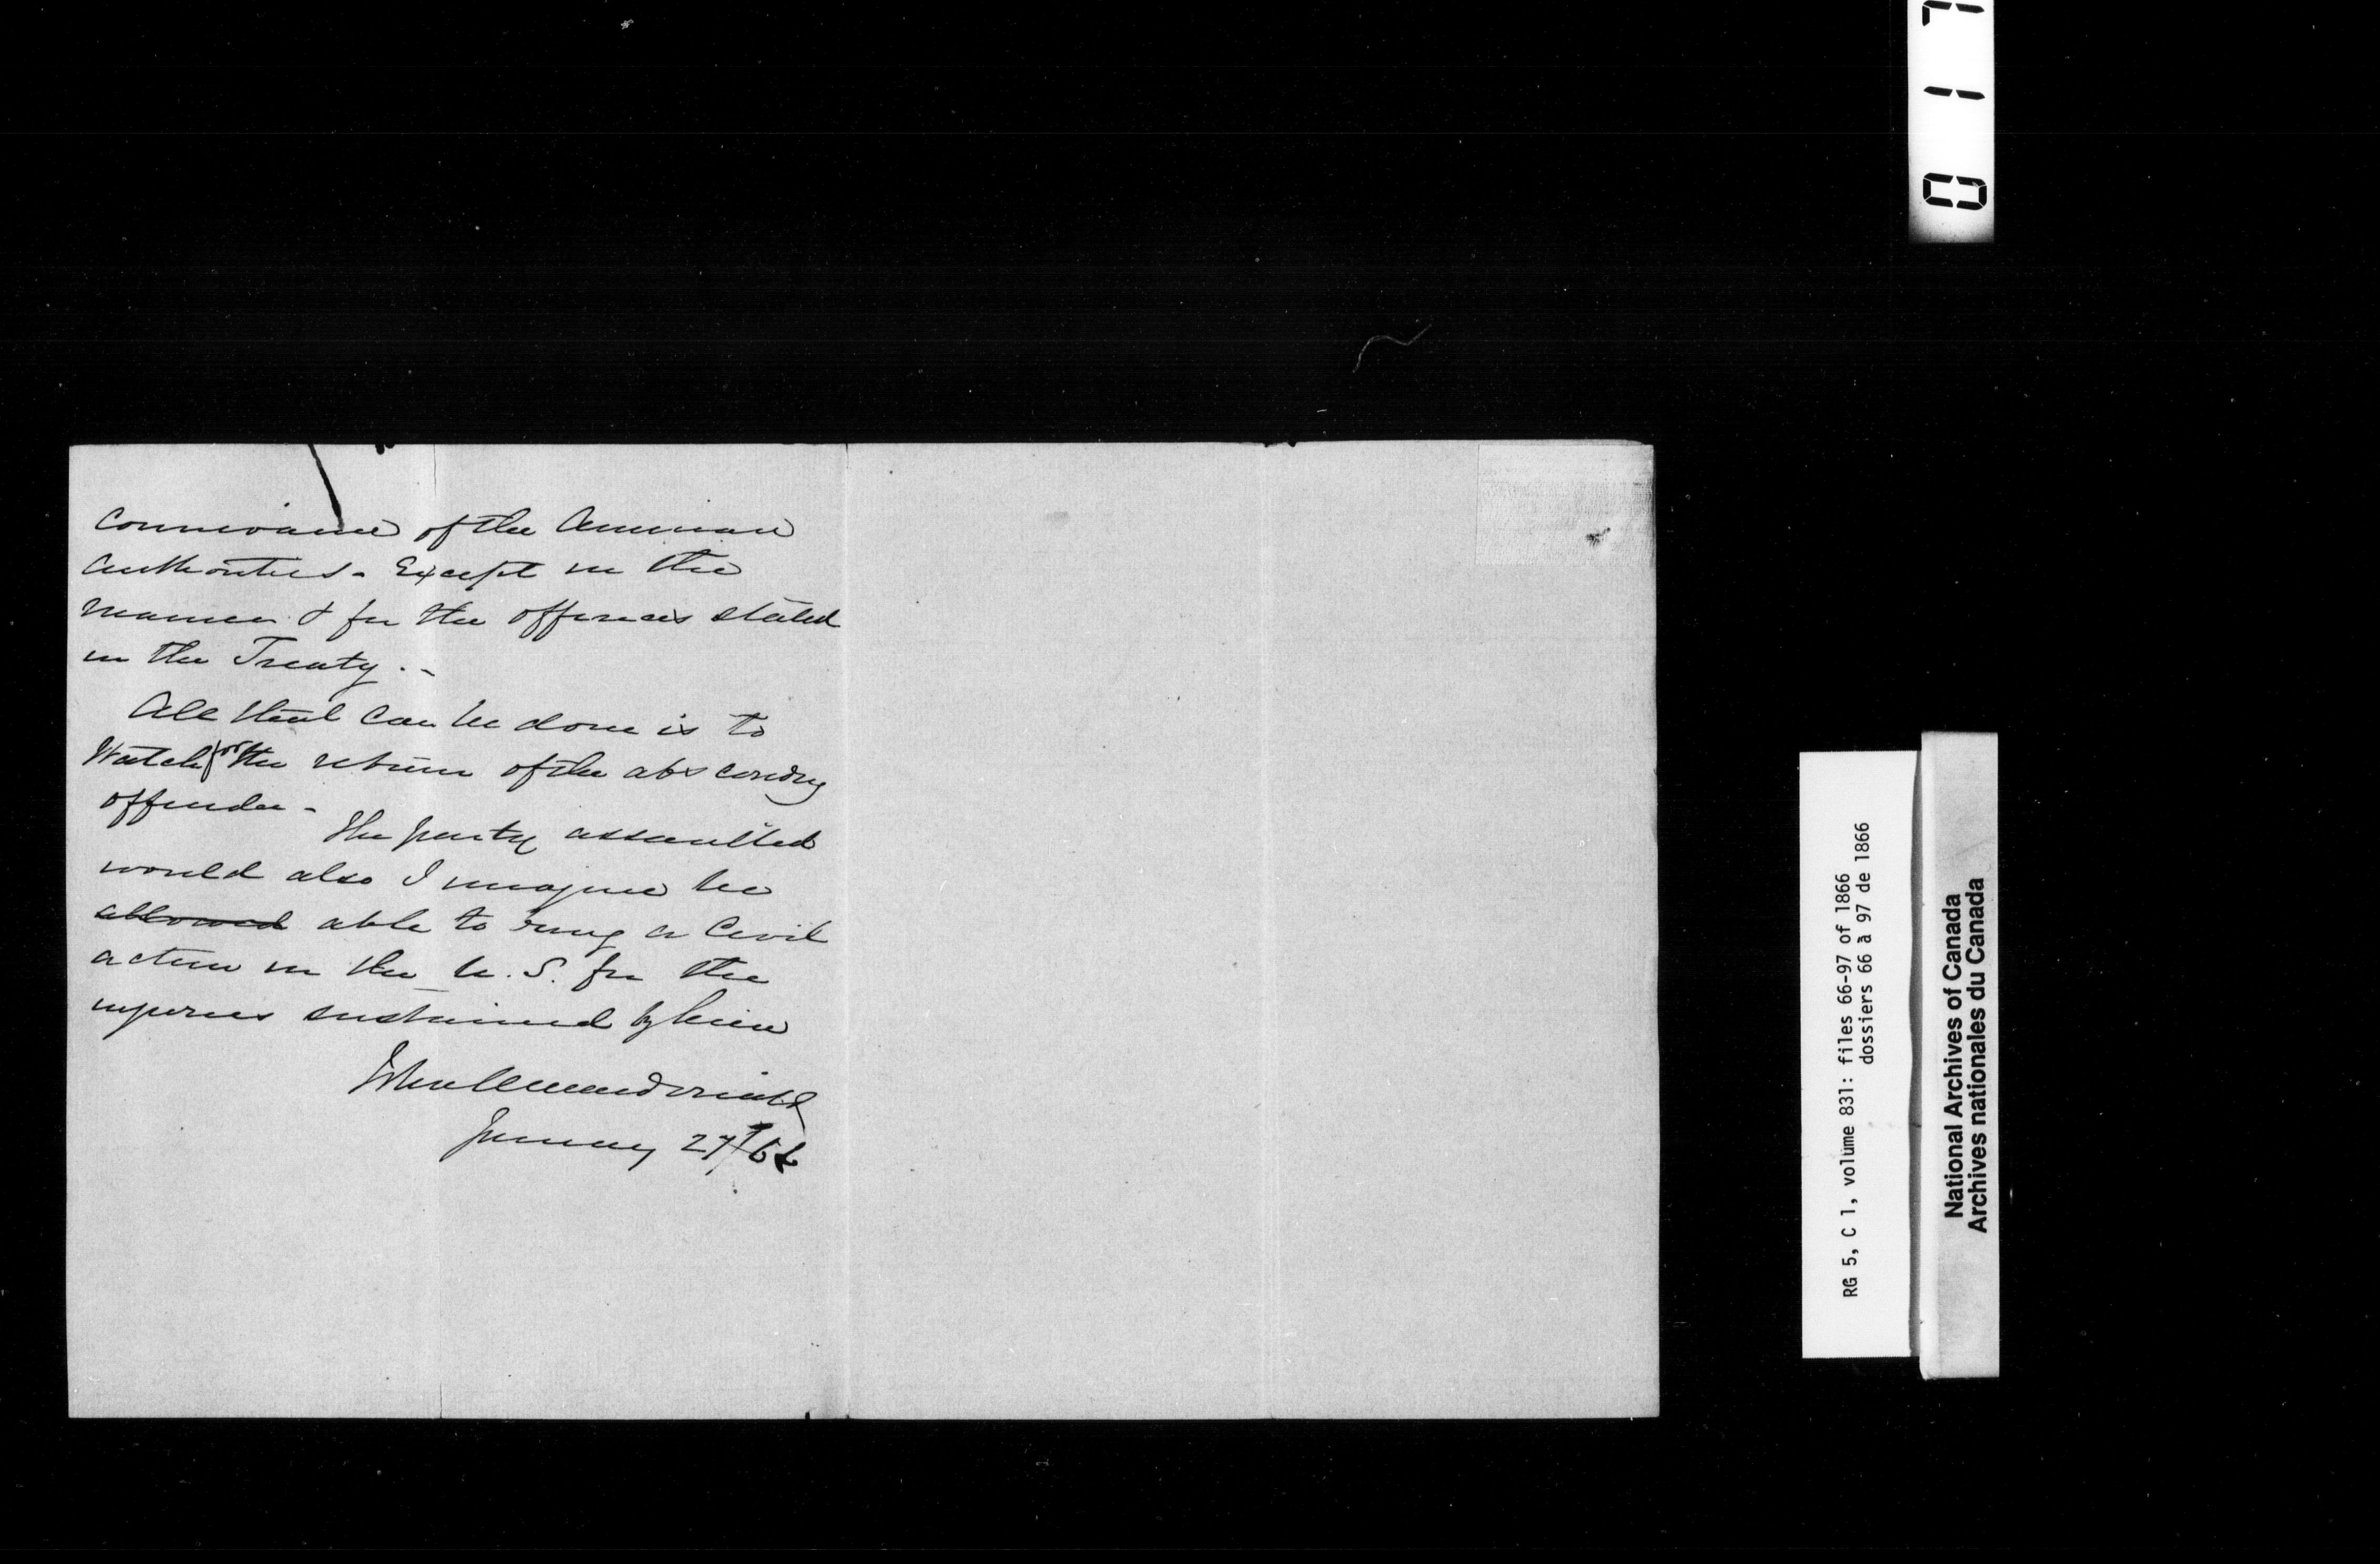 connivance of the American
Authorities - Except in the
manner & for the offences stated
in the Treaty. -
All that can be done is to
Watch for the return of the absconding
offender -
The party assaulted
would also I imagine be
allowed able to bring a Civil
action in the U.S. for the
injuries sustained by him
January 27/66
0 1 7
RG 5, C 1, volume 831: files 66-97 of 1866
dossiers 66 à 97 de 1866
National Archives of Canada
Archives nationales du Canada